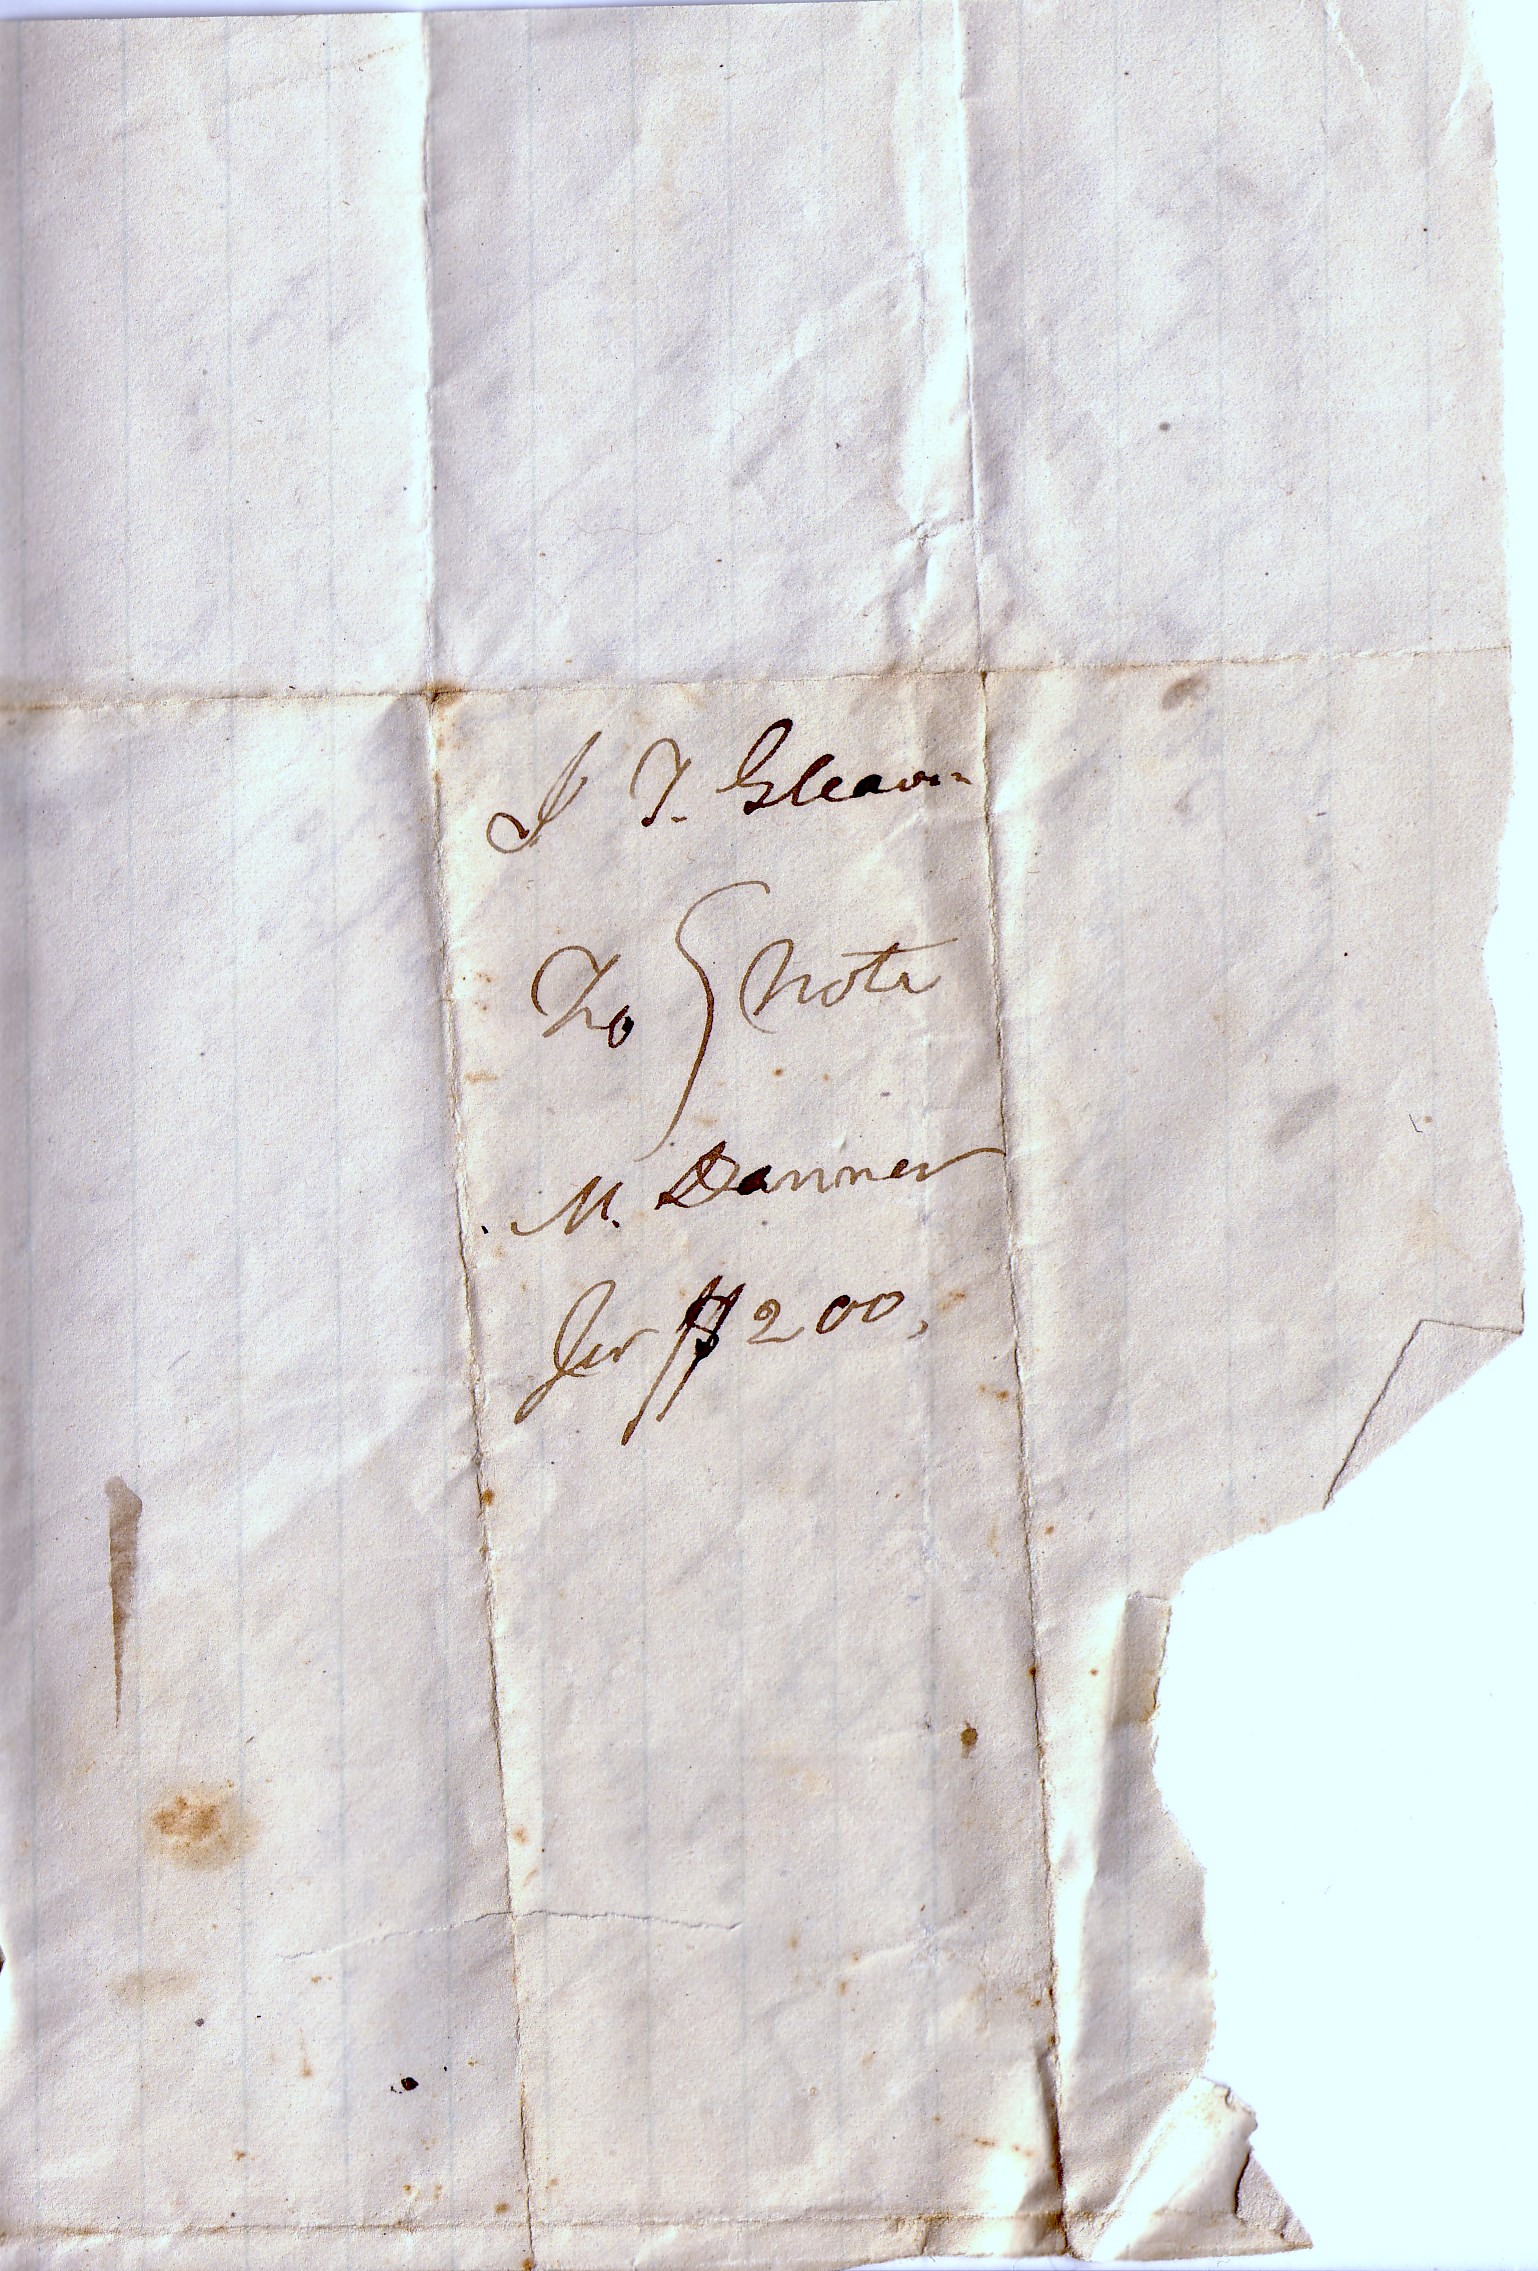 J T. Gleavin
To } note
M. Danner
for $200,